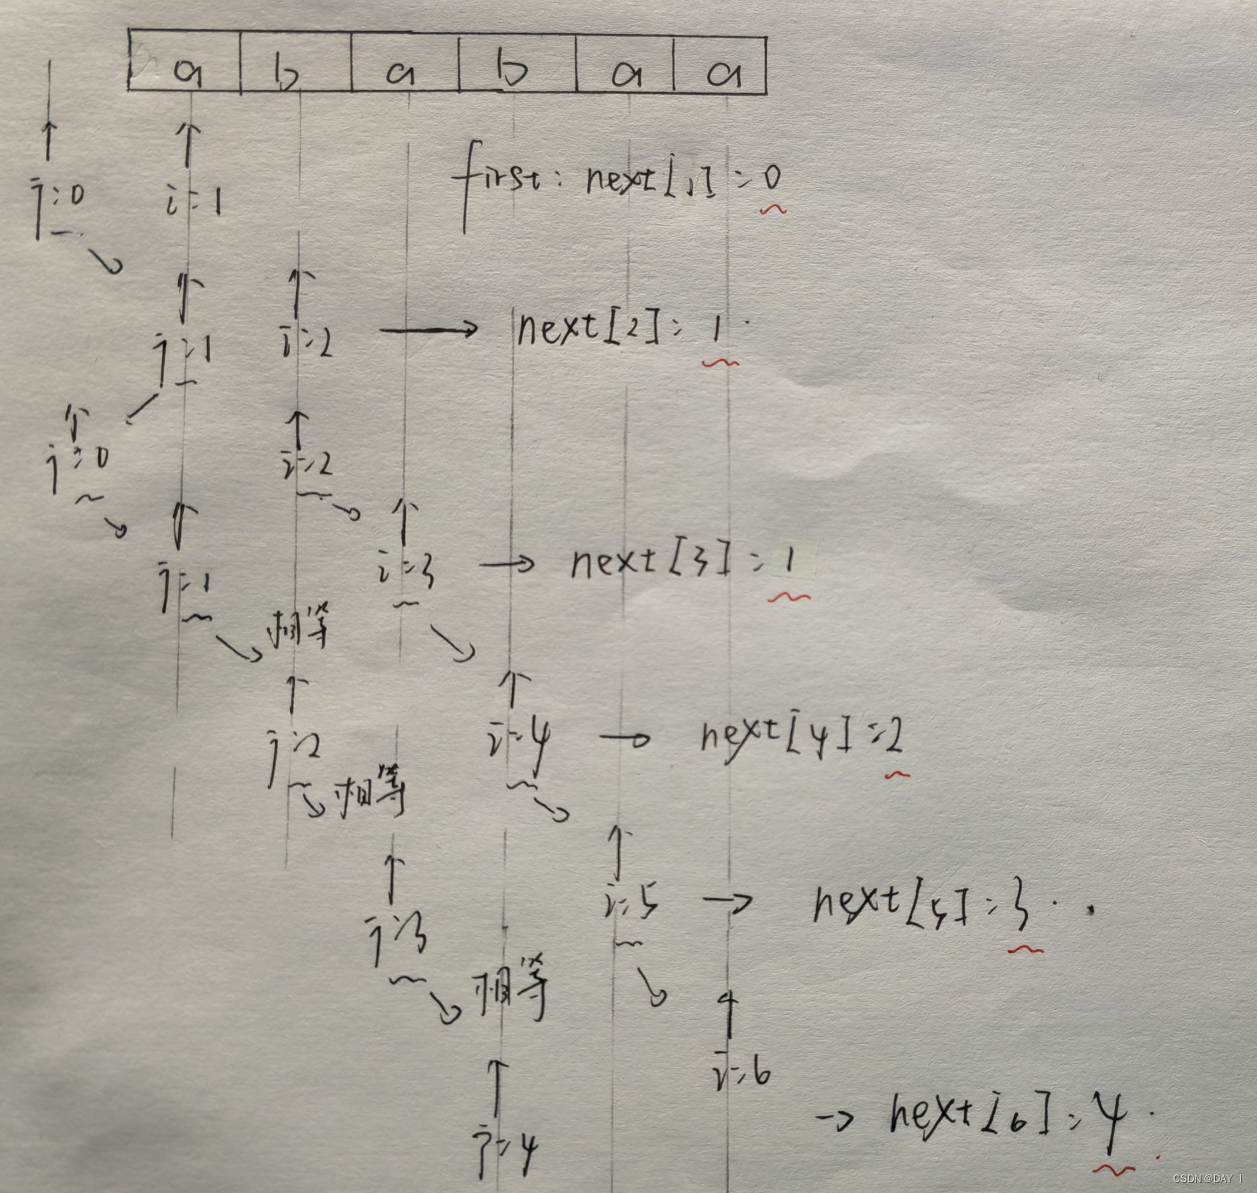 a b a b a a
j=0 i=1 first: next[1]=0
j=1 i=2 → next[2]=1
j=0 i=2
j=1 i=3 → next[3]=1
相等
j=2 i=4 → next[4]=2
相等
j=3 i=5 → next[5]=3
相等
i=6
j=4 → next[6]=4
CSDN @DAY丨